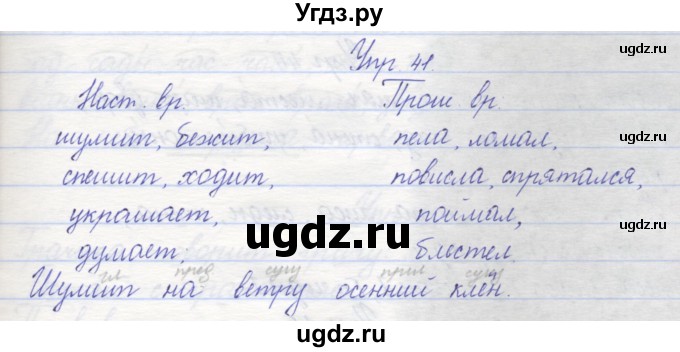 Угдз.ру
ugdz.ru
Упр 41
Наст. вр. Прош вр.
ugdz.ru
шумит, бежит, пела, ломал,
ugdz.ru
спешит, ходит, повисла, спрятался,
украшает, поймал,
ugdz.ru
ugdz.ru
думает, блестел
гл пред сущ прил сущ
Шумит на ветру осенний клён.
ugdz.ru